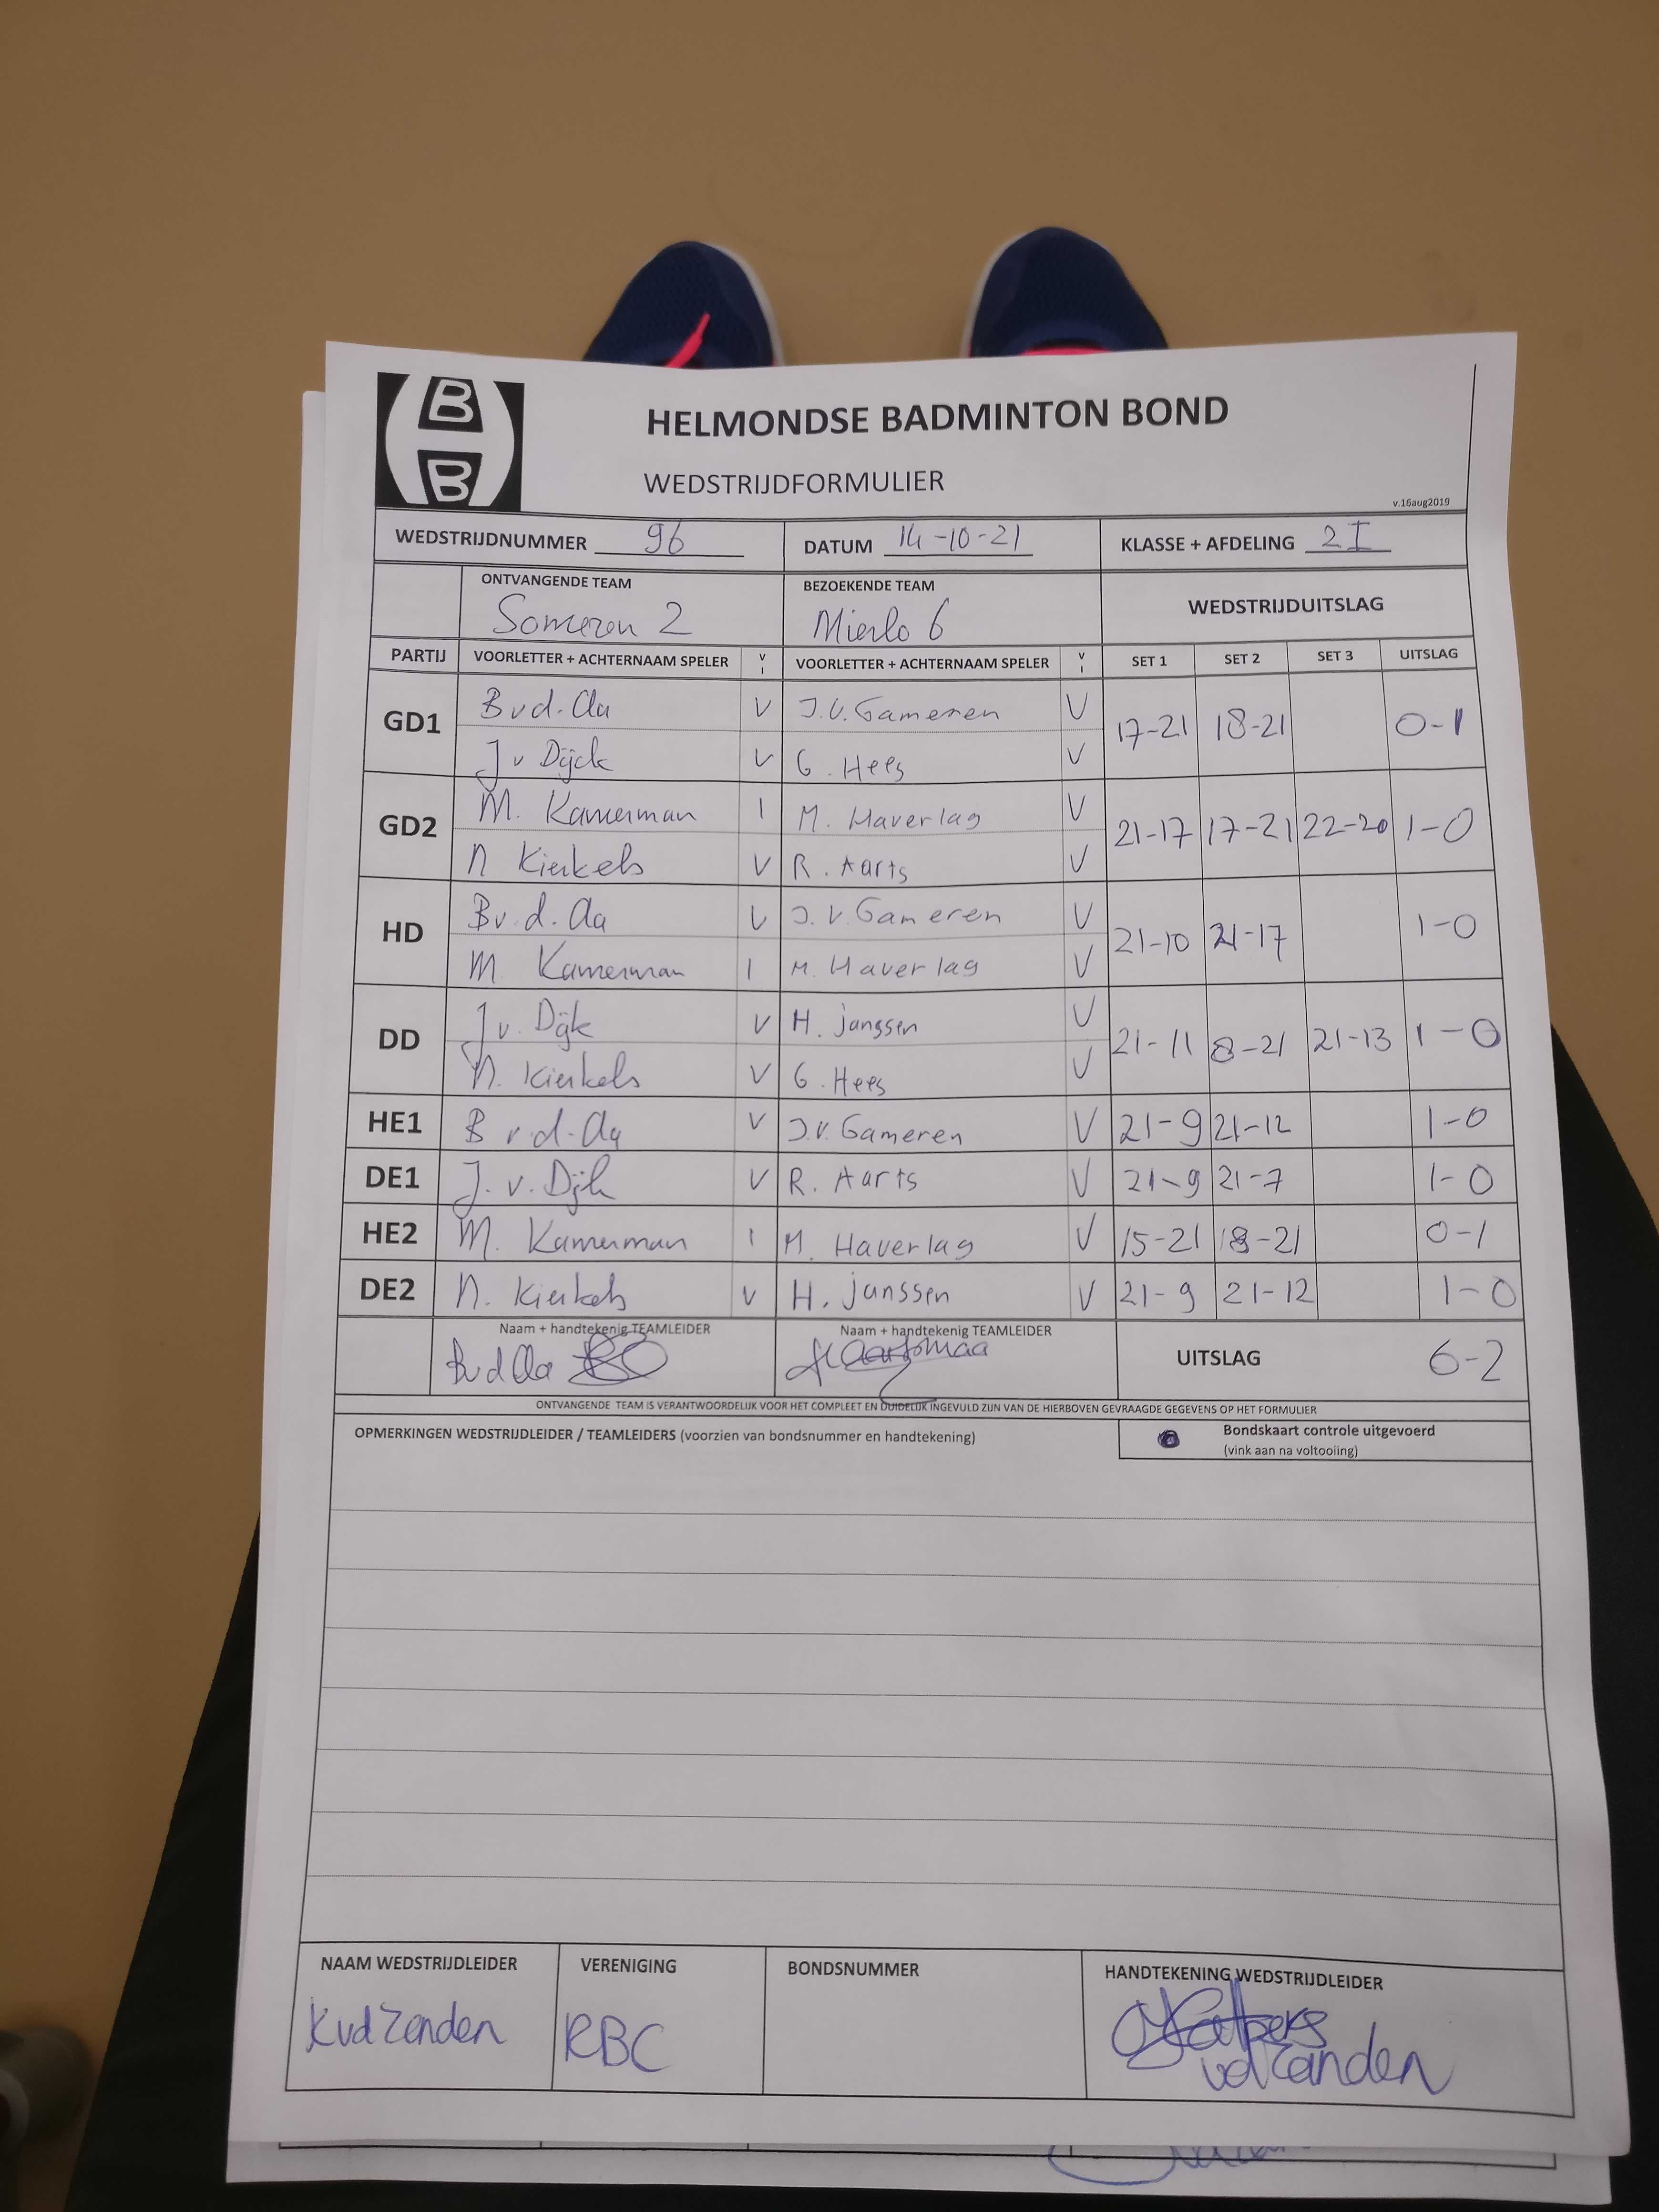 B
B
HELMONDSE BADMINTON BOND
WEDSTRIJDFORMULIER
v.16aug2019
WEDSTRIJDNUMMER 96 DATUM 14-10-21 KLASSE + AFDELING 2I
ONTVANGENDE TEAM BEZOEKENDE TEAM WEDSTRIJDUITSLAG
Someren 2 Mierlo 6
PARTIJ VOORLETTER + ACHTERNAAM SPELER V I VOORLETTER + ACHTERNAAM SPELER V I SET 1 SET 2 SET 3 UITSLAG
GD1 B vd. Aa V J.V. Gameren V 17-21 18-21 0-1
J v Dijck V G. Hees V
GD2 M. Kamerman I M. Haverlag V 21-17 17-21 22-20 1-0
N Kierkels V R. Aarts V
HD B v. d. Aa V J. V. Gameren V 21-10 21-17 1-0
M Kamerman I M. Haverlag V
DD J v. Dijk V H. Janssen V 21-11 8-21 21-13 1-0
N. Kierkels V G. Hees V
HE1 B v.d. Aa V J.V. Gameren V 21-9 21-12 1-0
DE1 J. v. Dijk V R. Aarts V 21-9 21-7 1-0
HE2 M. Kamerman I M. Haverlag V 15-21 18-21 0-1
DE2 N. Kierkels V H. Janssen V 21-9 21-12 1-0
Naam + handtekenig TEAMLEIDER Naam + handtekenig TEAMLEIDER UITSLAG 6-2
B vd Aa
ONTVANGENDE TEAM IS VERANTWOORDELIJK VOOR HET COMPLEET EN DUIDELIJK INGEVULD ZIJN VAN DE HIERBOVEN GEVRAAGDE GEGEVENS OP HET FORMULIER
OPMERKINGEN WEDSTRIJDLEIDER / TEAMLEIDERS (voorzien van bondsnummer en handtekening) Bondskaart controle uitgevoerd
(vink aan na voltooiing)
NAAM WEDSTRIJDLEIDER VERENIGING BONDSNUMMER HANDTEKENING WEDSTRIJDLEIDER
K vd Zanden RBC
vd Zanden